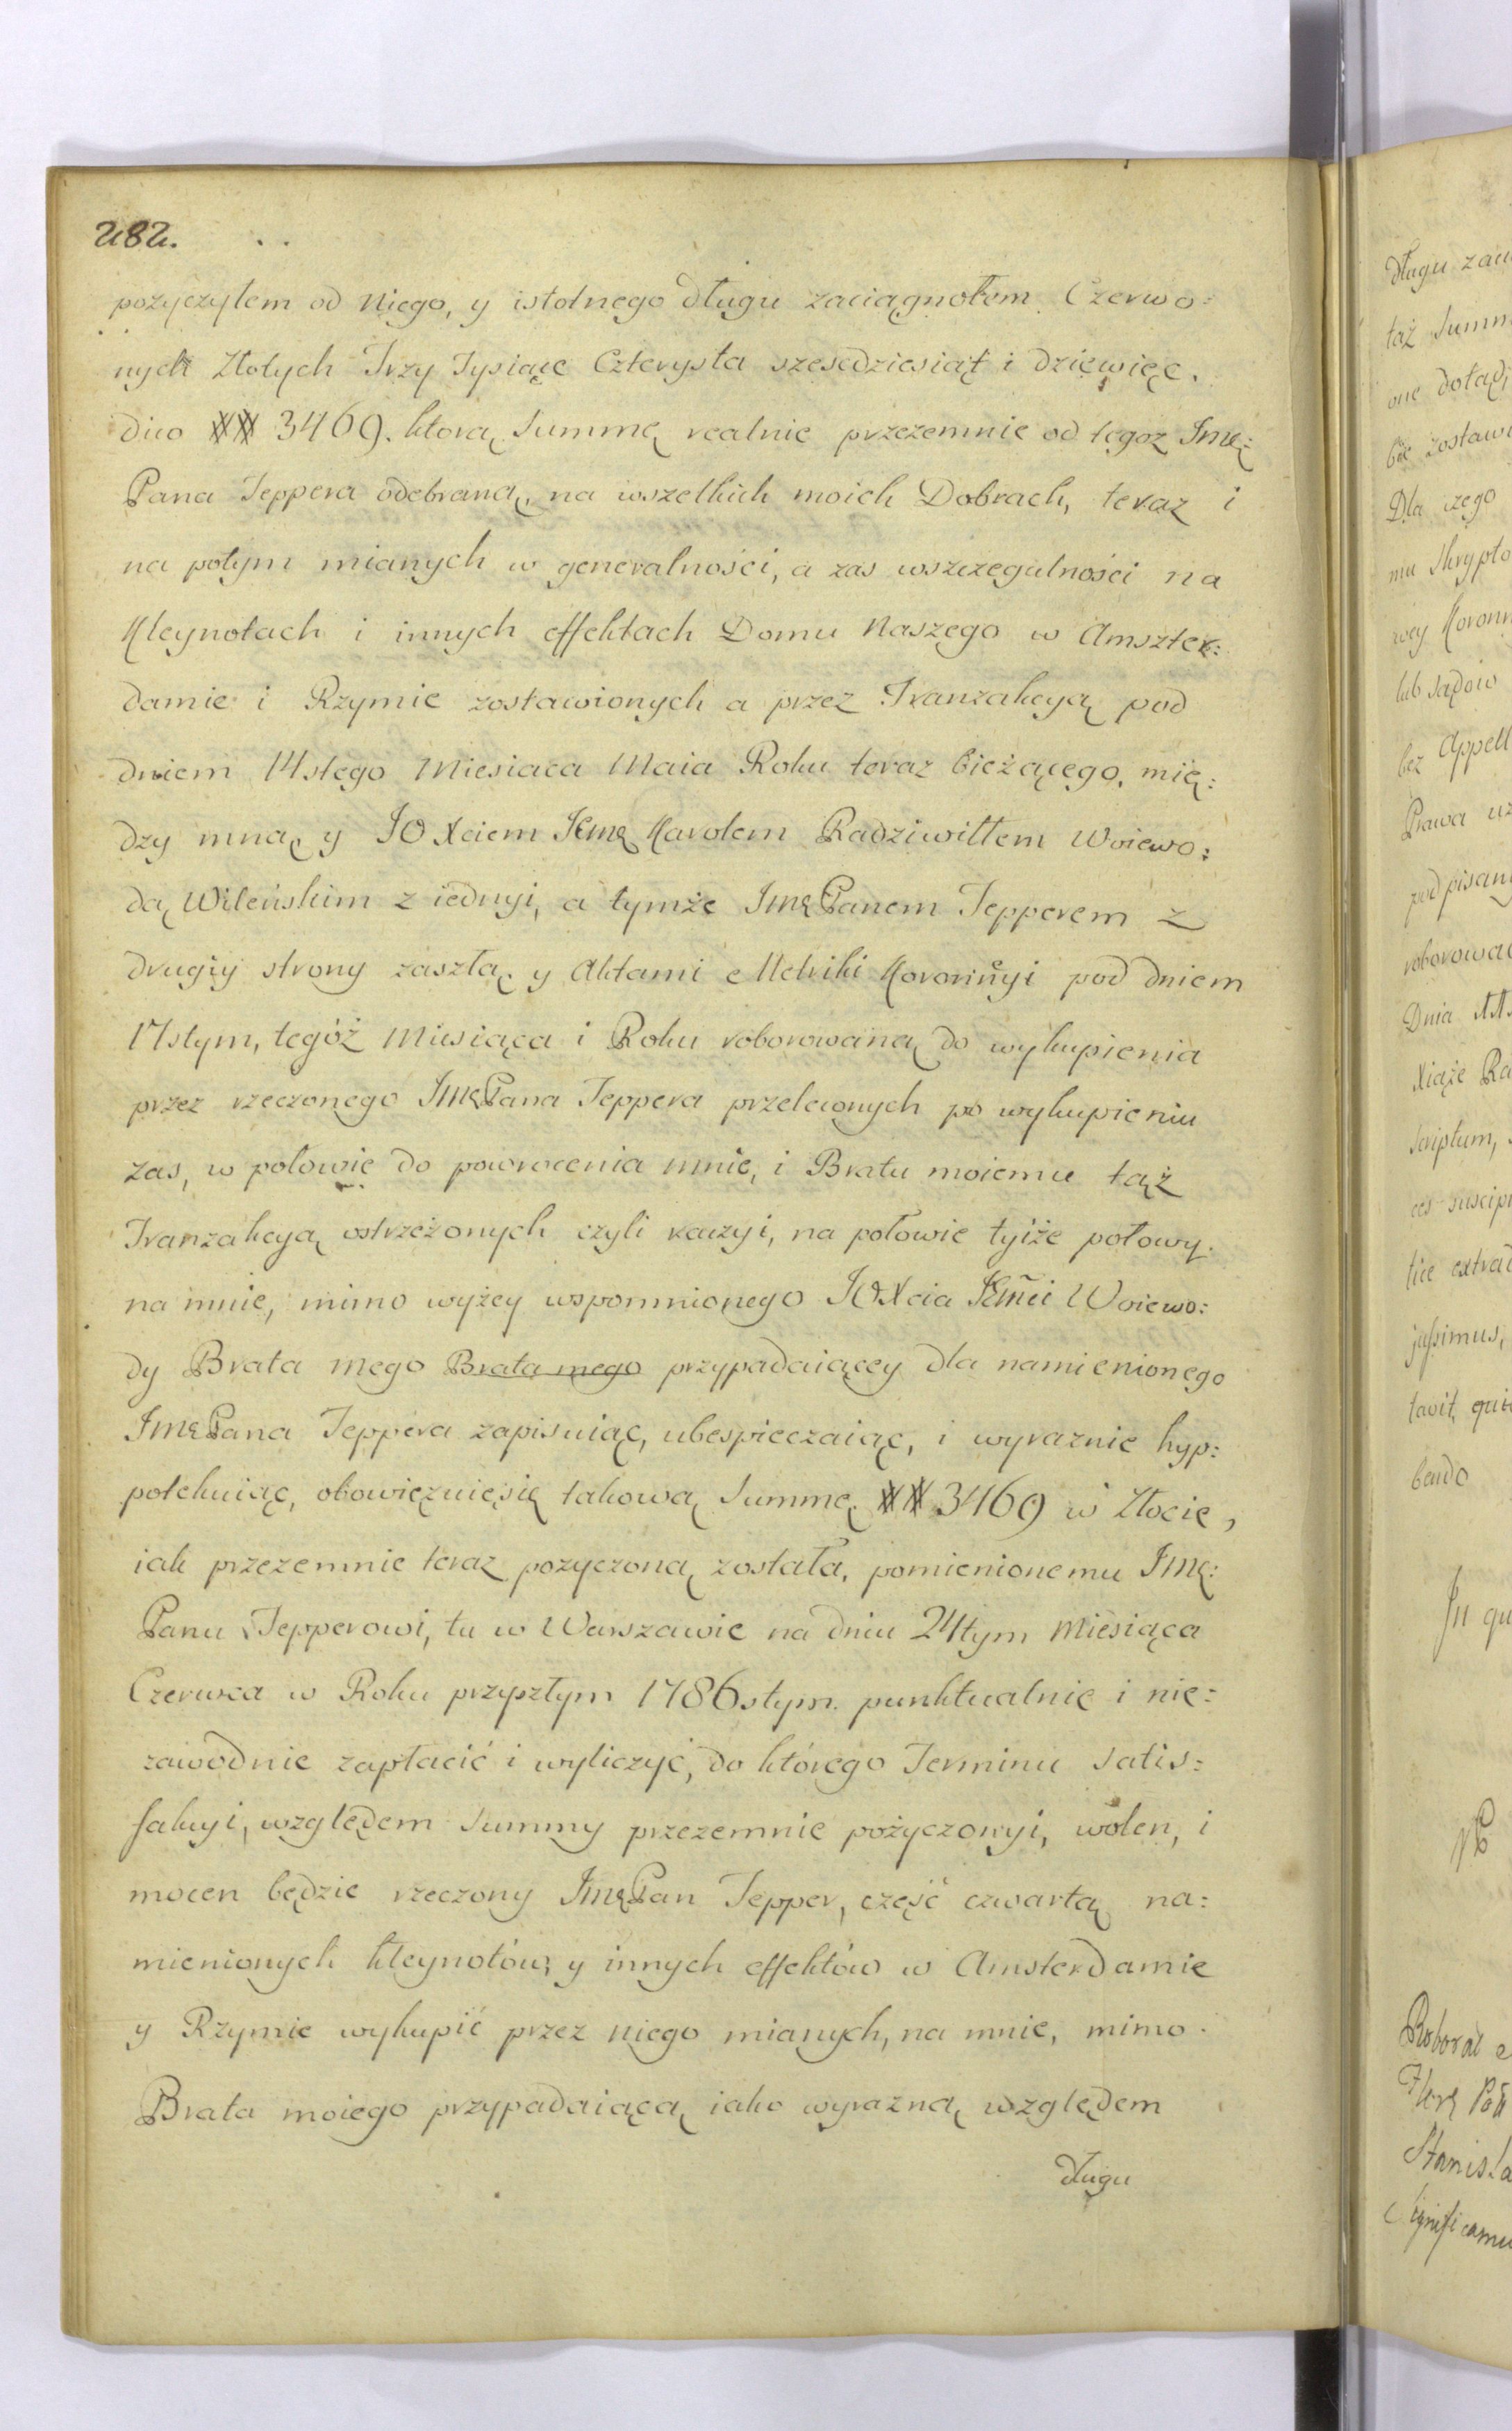 282.
pożyczyłem od Niego, y istotnego Długu zaciągnołem Czerwo:
nych Złotych Trzy Tysiące Czterysta szescdziesiąt i dziewięć.
dico ## 3469. ktorą Summę realnie przezemnie od tegoz Jmę:
Pana Teppera odebraną, na wszelkich moich Dobrach, teraz i
na potym mianych w generalności, a zas wszczegulności na
Kleynotach i innych effektach Domu Naszego w Amszter:
damie i Rzymie zostawionych a przez Tranzakcyą pod
dniem 14stego Miesiaca Maia Roku teraz bieżącego, mię:
dzy mną y JO Xciem Jemę Karolem Radziwiłłem Woiewo:
dą Wileńskim z iednyi, a tymże JmęPanem Tepperem z
drugiy strony zaszłą y Aktami Metriki Koronnyi pod dniem
17stym, tegóż Miesiąca i Roku roborowaną do wykupienia
przez rzeczonego JmęPana Teppera przeleconych po wykupieniu
zas, w połowie do powrocenia mnie, i Bratu moiemu tąż
Tranzakcyą ostrzeżonych czyli raczyi, na połowie tyiże połowy
na mnie, mimo wyżey wspomnionego JOXcia Jemci Woiewo:
dy Brata mego Brata mego przypadaiącey dla namienionego
JmęPana Teppera zapisuiąc, ubespieczaiąc, i wyraznie hyp:
potekuiąc, obowięzuięsię takową Summę ## 3469 w Złocie,
iak przezemnie teraz pozyczoną została, pomienionemu Jmę:
Panu Tepperowi, tu w Warszawie na dniu 24tym Miesiąca
Czerwca w Roku przyszłym 1786stym. punktualnie i nie:
zawodnie zapłacić i wyliczyć, do którego Terminu satis:
fakcyi, względem Summy przezemnie pożyczonyi, wolen, i
mocen będzie rzeczony JmęPan Tepper, część czwartą na:
mienionych kleynotów, y innych effektów w Amsterdamie
y Rzymie wykupić przez niego mianych, na mnie, mimo
Brata moiego przypadaiącą iako wyrazną względem
długu
Długu
taż Summ
one
Dla czego
mu Skrypto
wey Koronn
lub sądow
bez Appell
Prawa
podpisan
roborowa
Dnia
Xiąże Ra
scriptum,
suscip
extrad
tavit,
In qu
Roborat
Stanisla